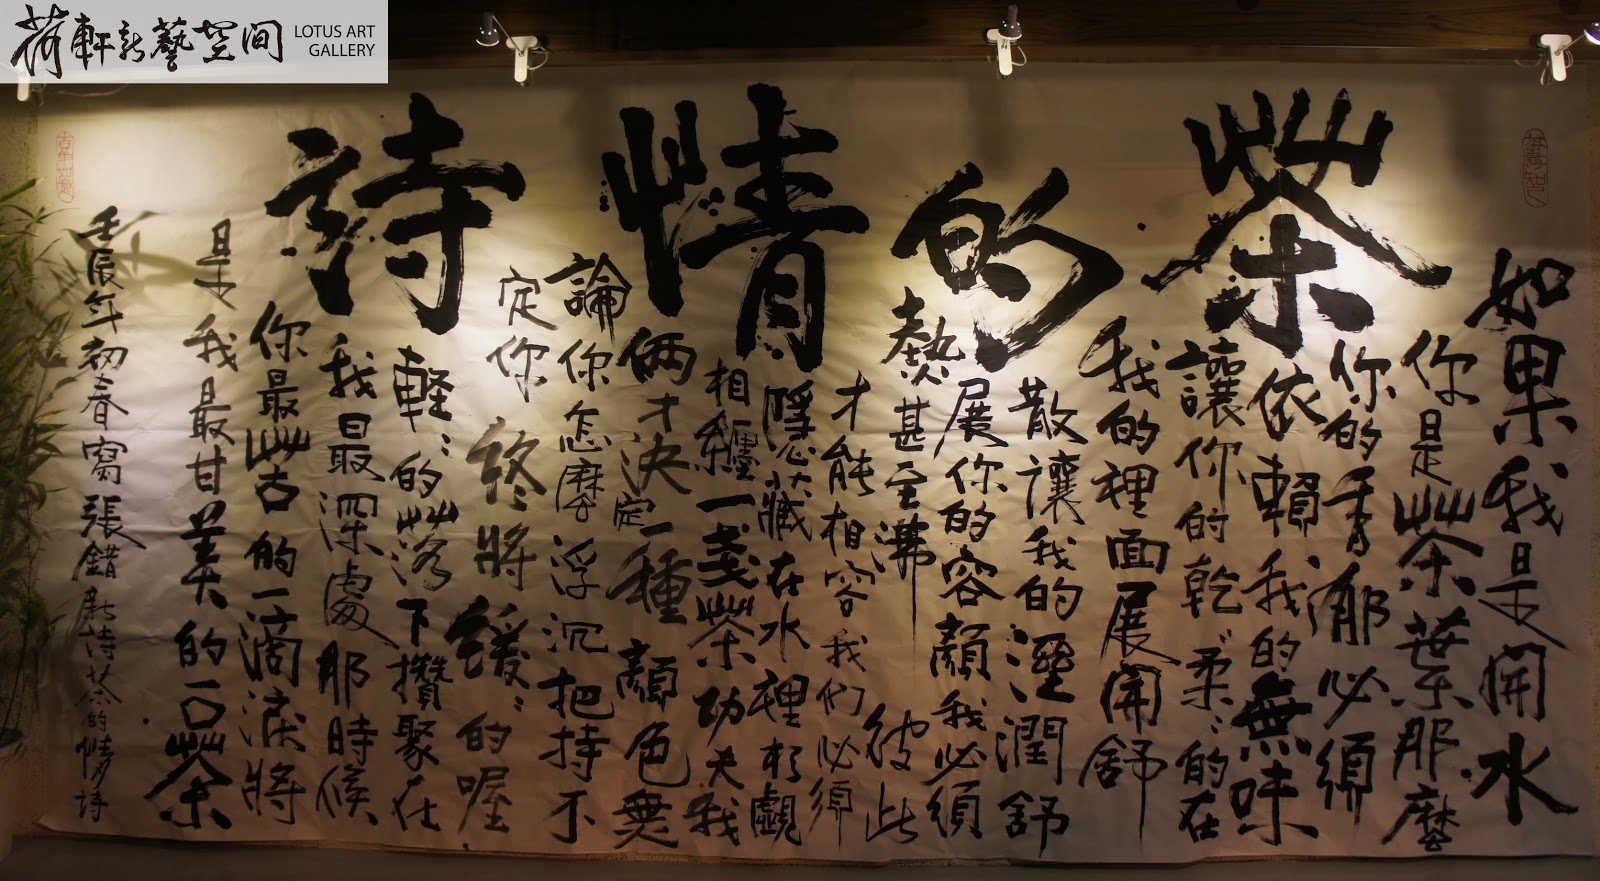 荷軒新藝空间
LOTUS ART
GALLERY
茶的情詩
如果我是開水
你是茶葉那麼
你的香郁必須
依賴我的無味
讓你的乾柔ミ的在
我的裡面展開舒
散讓我的溼潤舒
展你的容顏我必須
熱甚至沸
彼此
才能相容我们必須
隱藏在水裡相覷
相纏一盞茶功夫我
倆才決定一種顏色無
論你怎麼浮沉把持不
定你終將緩ミ的喔
輕ミ的落下攢聚在
我最深處那時候
你最苦的一滴淚將
是我最甘美的一口茶
壬辰年初春寫張錯新詩茶的情詩